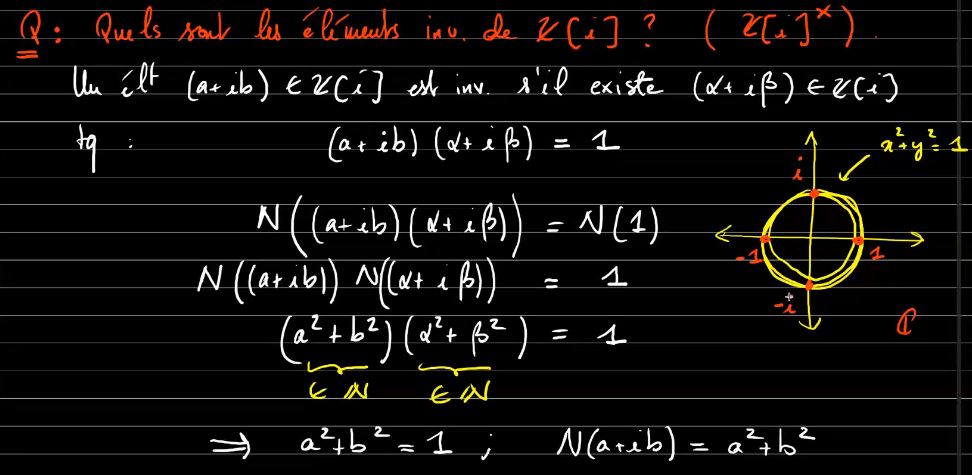 Q : Quels sont les éléments inv. de ℤ[i] ? (ℤ[i]^×).
Un élt (a+ib) ∈ ℤ[i] est inv. s'il existe (α+iβ) ∈ ℤ[i]
tq : (a+ib)(α+iβ) = 1
x²+y²=1
i
-1
1
-i
ℂ
N((a+ib)(α+iβ)) = N(1)
N((a+ib)) N((α+iβ)) = 1
(a²+b²)(α²+β²) = 1
∈ ℕ ∈ ℕ
⟹ a²+b² = 1 ; N(a+ib) = a²+b²